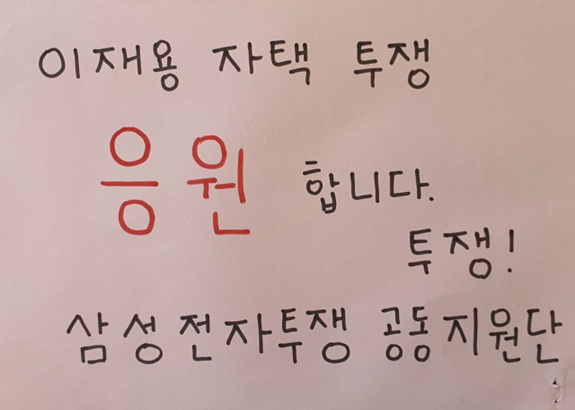 이재용 자택 투쟁
응원 합니다.
투쟁!
삼성전자투쟁 공동지원단